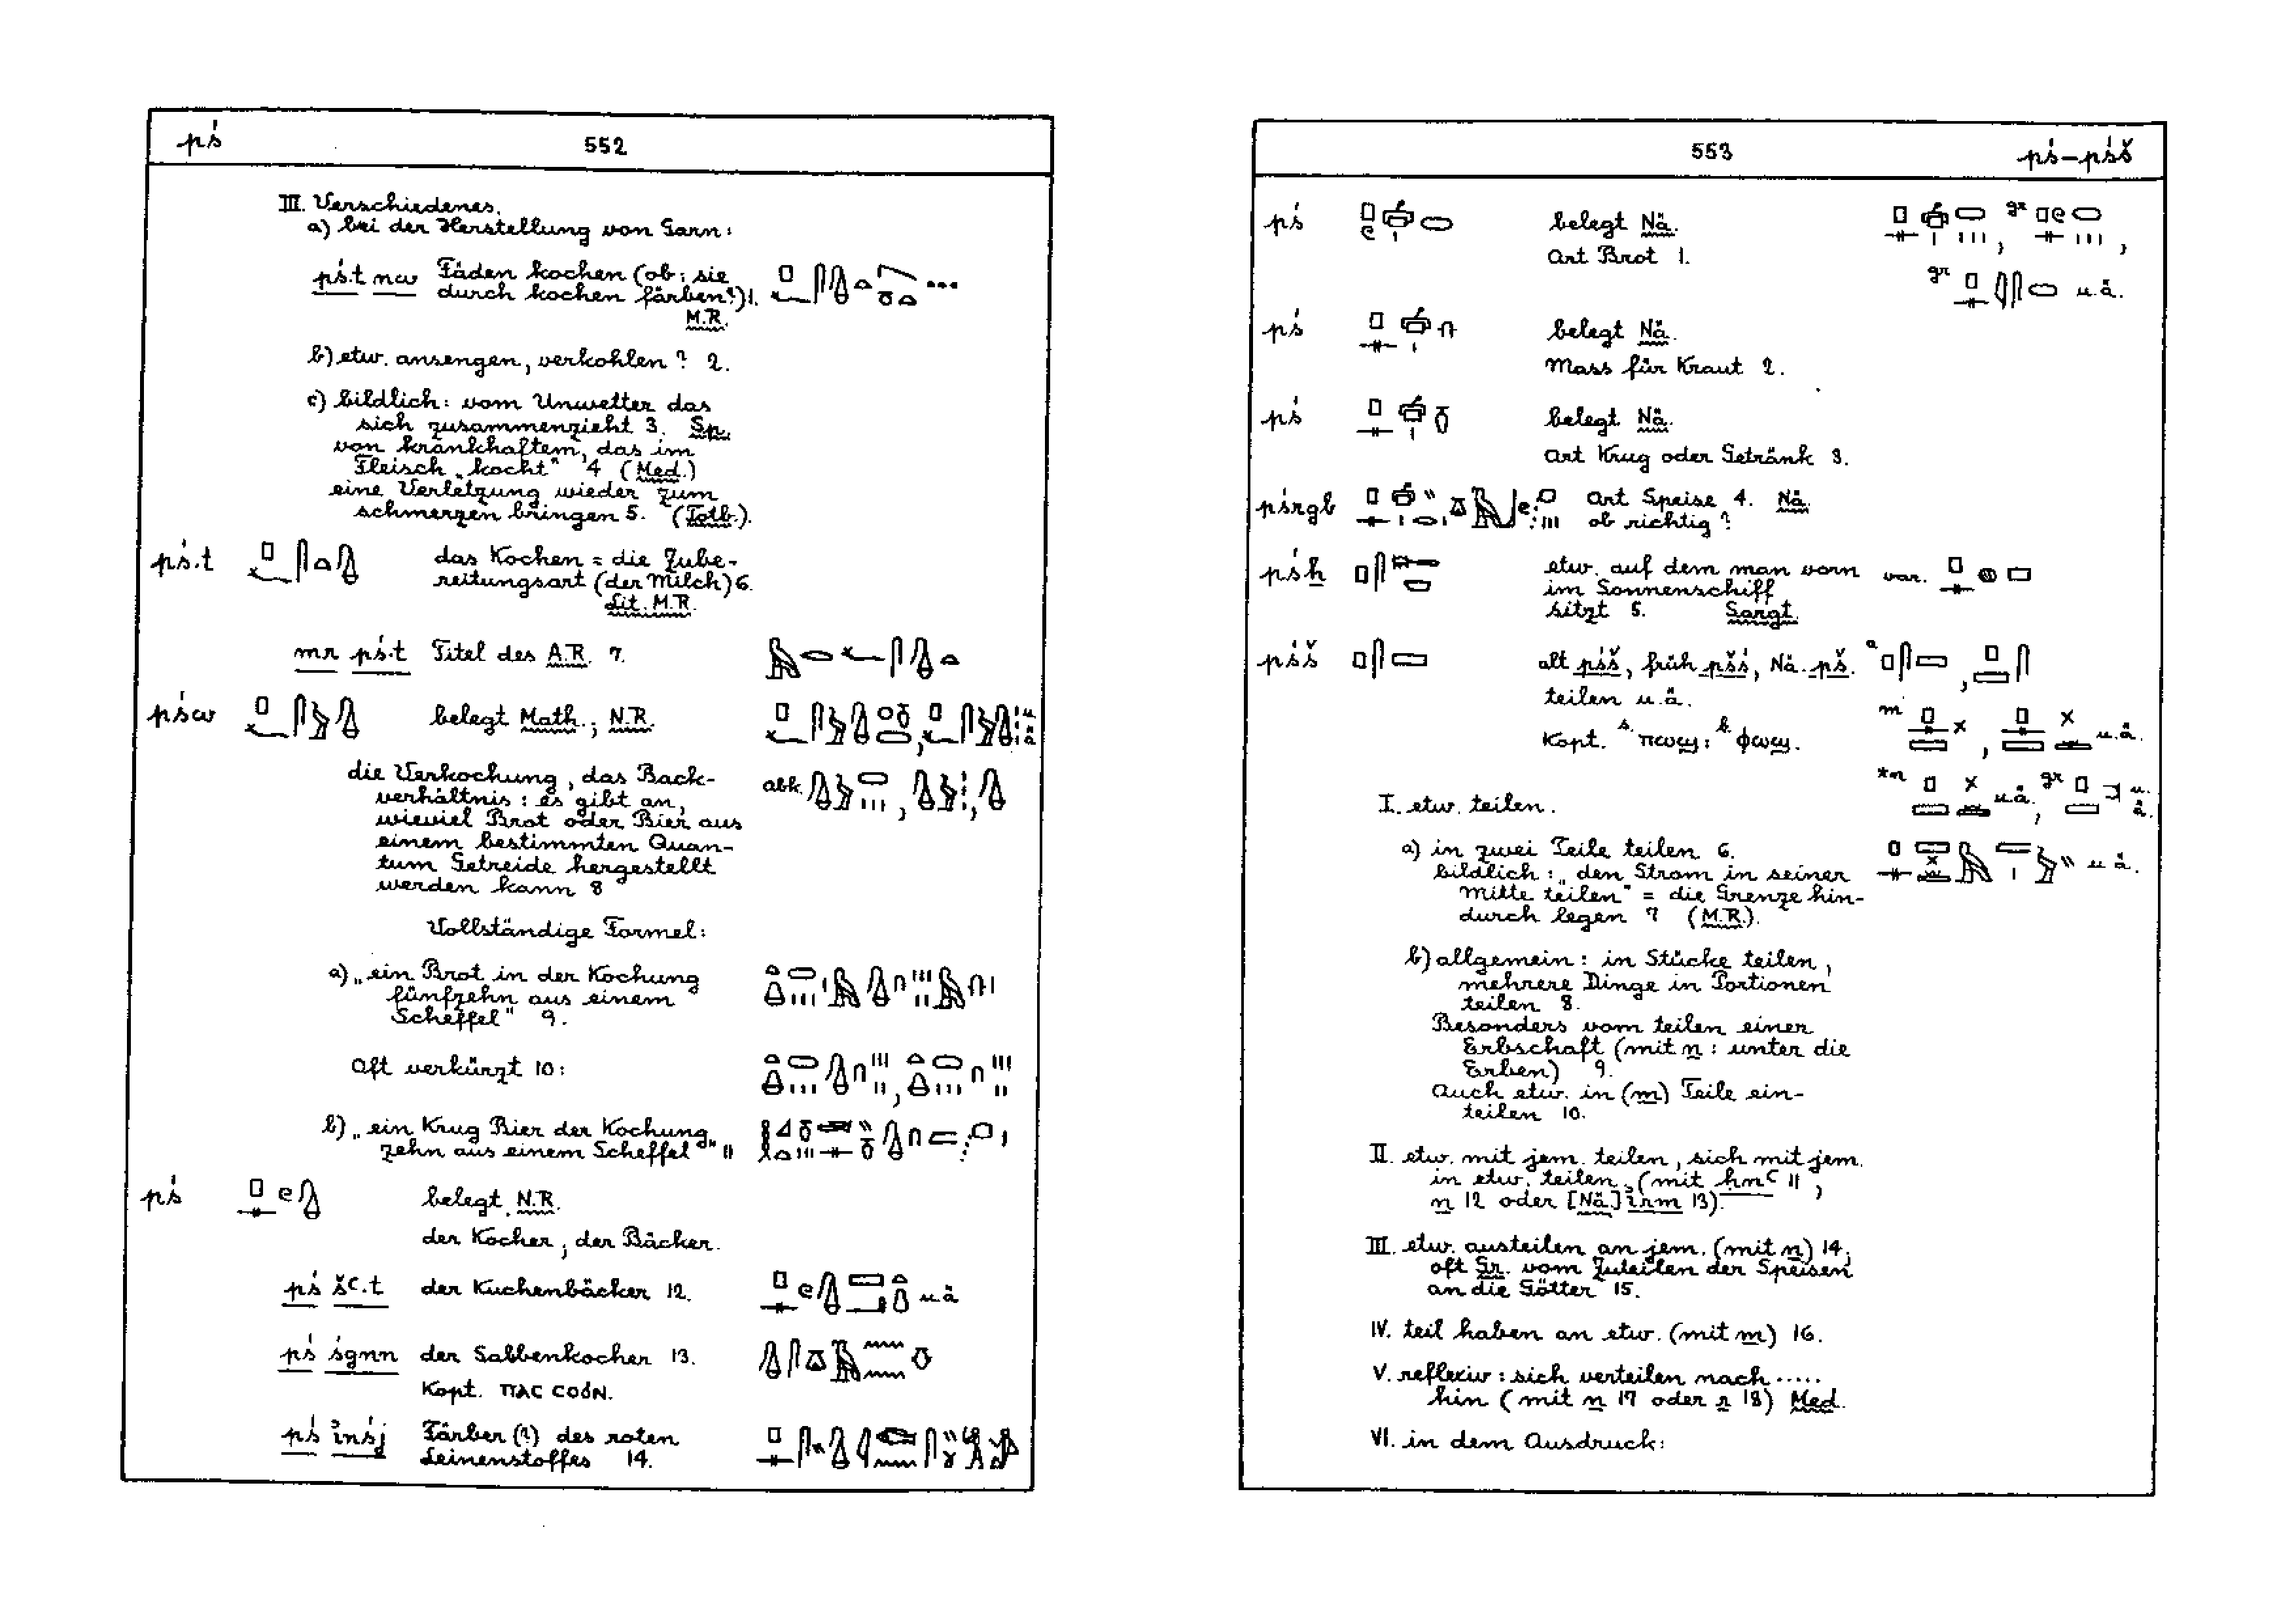 pś́ 552
III. Verschiedenes.
a) bei der Herstellung von Garn:
pś.t nw Fäden kochen (ob: sie
durch kochen färben?) 1.
M.R.
b) etw. ansengen, verkohlen? 2.
c) bildlich: vom Unwetter das
sich zusammenzieht 3. Sp.
von krankhaftem, das im
Fleisch „kocht" 4 (Med.)
eine Verletzung wieder zum
schmerzen bringen 5. (Totb.).
pś.t das Kochen = die Zube-
reitungsart (der Milch) 6.
Lit. M.R.
mr pś.t Titel des A.R. 7.
pśw belegt Math.; N.R. u.ä.
die Verkochung, das Back- abk.
verhältnis: es gibt an,
wieviel Brot oder Bier aus
einem bestimmten Quan-
tum Getreide hergestellt
werden kann 8
Vollständige Formel:
a) „ein Brot in der Kochung
fünfzehn aus einem
Scheffel" 9.
Oft verkürzt 10:
b) „ein Krug Bier der Kochung
zehn aus einem Scheffel" 11
pś belegt N.R.
der Kocher, der Bäcker.
pś šꜥ.t der Kuchenbäcker 12. u.ä
pś śgnn der Salbenkocher 13.
Kopt. ⲡⲁⲥ ⲥⲟϭⲛ.
pś inśj Färber (?) des roten
Leinenstoffes 14.
553 pś-pśš
pś belegt Nä. gr
Art Brot 1.
gr u.ä.
pś belegt Nä.
Mass für Kraut 2.
pś belegt Nä.
Art Krug oder Getränk 3.
pśrgb Art Speise 4. Nä
ob richtig?
pśẖ etw. auf dem man vorn var.
im Sonnenschiff
sitzt 5. Sargt.
pśš alt pśš, früh pšś, Nä. pš. a
teilen u.ä.
m u.ä.
Kopt. s. ⲡⲱϣ: b. ⲫⲱϣ.
*n u.ä. gr u.ä.
I. etw. teilen.
a) in zwei Teile teilen 6. u.ä.
bildlich: „den Strom in seiner
Mitte teilen" = die Grenze hin-
durch legen 7 (M.R.).
b) allgemein: in Stücke teilen,
mehrere Dinge in Portionen
teilen 8.
Besonders vom teilen einer
Erbschaft (mit n: unter die
Erben) 9.
Auch etw. in (m) Teile ein-
teilen 10.
II. etw. mit jem. teilen, sich mit jem.
in etw. teilen (mit ḥnꜥ 11,
n 12 oder [Nä.] irm 13).
III. etw. austeilen an jem. (mit n) 14;
oft Gr. vom Zuteilen der Speisen
an die Götter 15.
IV. teil haben an etw. (mit m) 16.
V. reflexiv: sich verteilen nach .....
hin (mit n 17 oder r 18) Med.
VI. in dem Ausdruck: